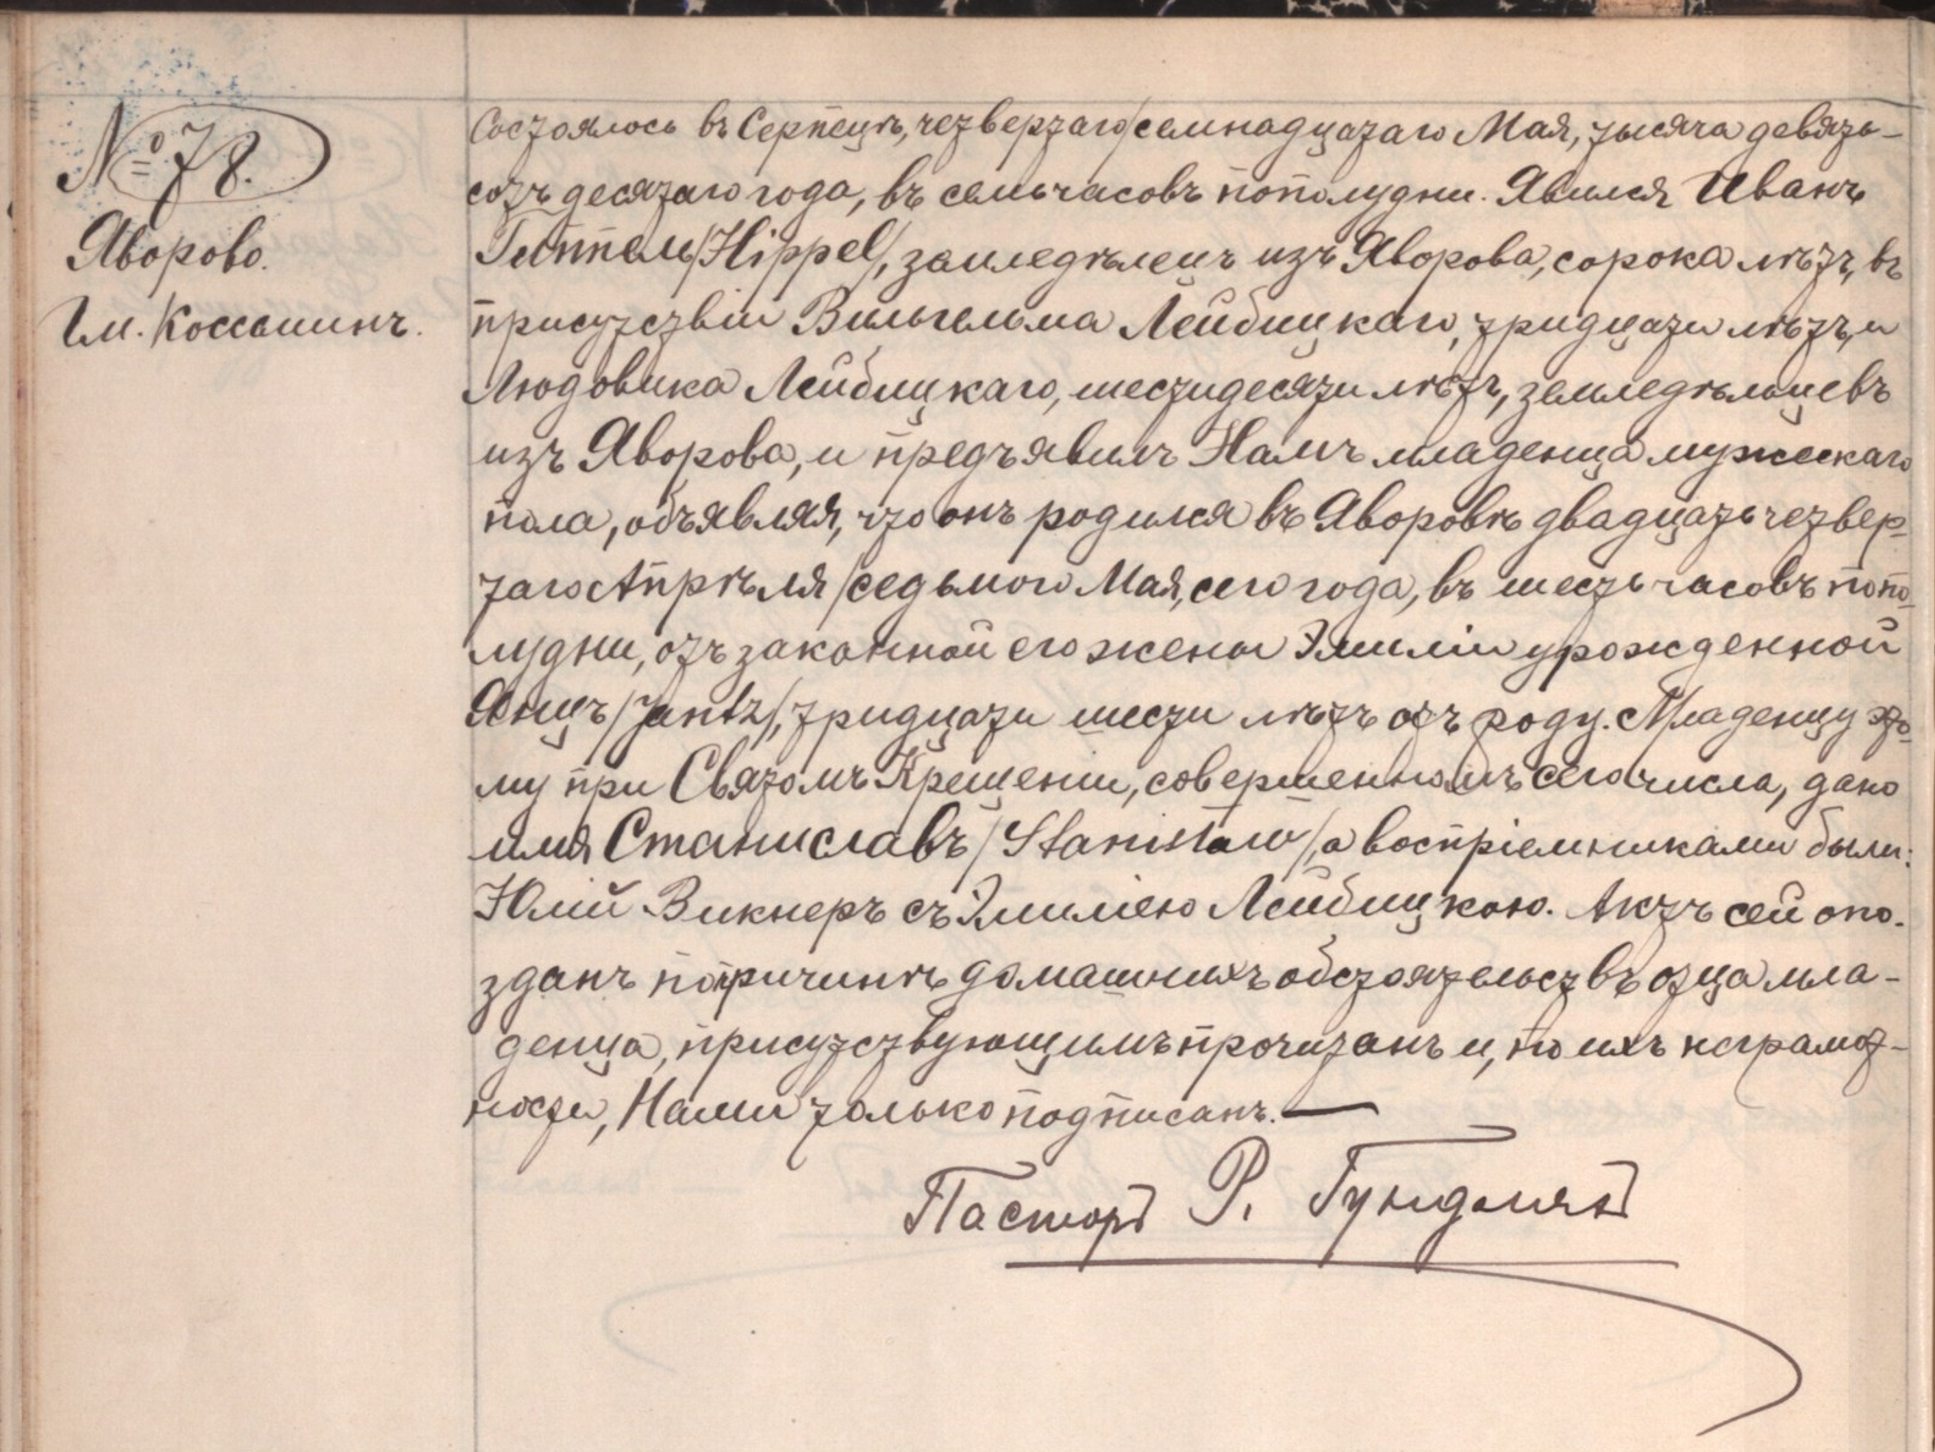 № 78.
Яворово.
Гм. Коссеминъ.
Состоялось въ Серпецѣ, четвертаго/семнадцатаго Мая, тысяча девять-
сотъ десятаго года, въ семь часовъ пополудни. Явился Иванъ
Гиппель/Hippel/, землєдѣлецъ изъ Яворова, сорока лѣтъ, въ
присутствіи Вильгельма Лейбицкаго, тридцати лѣтъ, и
Людовика Лейбицкаго, шестидесяти лѣтъ, земледѣльцевъ
изъ Яворова, и предъявилъ Намъ младенца мужескаго
пола, объявляя, что онъ родился въ Яворовѣ двадцать четвер-
таго Апрѣля/седьмого Мая, сего года, въ шесть часовъ попо-
лудни, отъ законной его жены Эмиліи урожденной
Янцъ/Jantz/, тридцати шести лѣтъ отъ роду. Младенцу это-
му при Святомъ Крещеніи, совершенномъ сего числа, дано
имя Станиславъ/Stanisław/, а воспріемниками были:
Юлій Викнеръ съ Эмиліею Лейбицкою. Актъ сей опо-
зданъ по причинѣ домашнихъ обстоятельствъ отца мла-
денца, присутствующимъ прочитанъ и, по ихъ неграмот-
ности, Нами только подписанъ. —
Пасторъ Р. Гундлахъ